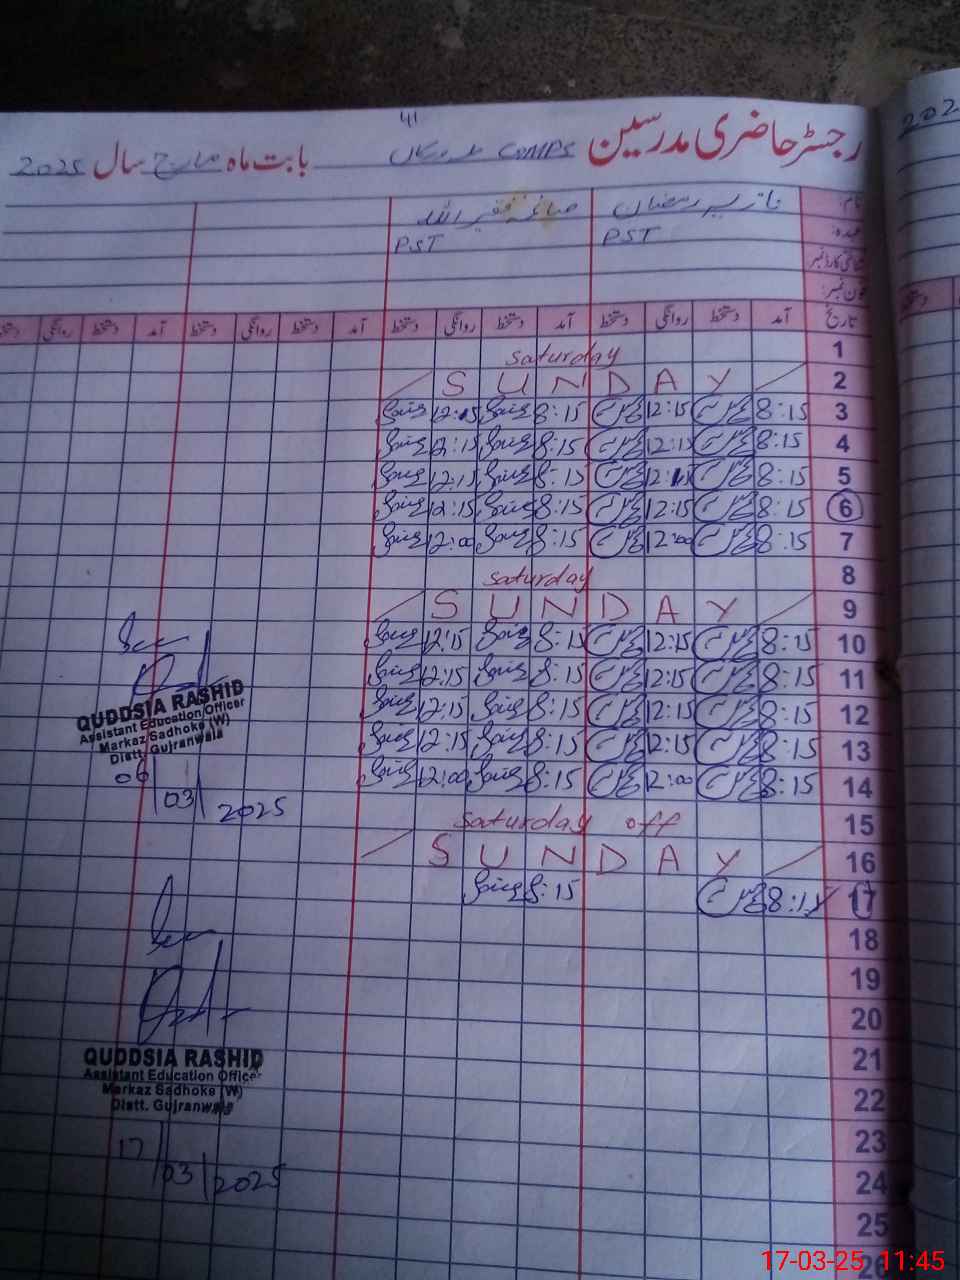 41
رجسٹر حاضری مدرسین GCMPS بابت ماہ مارچ سال 2025
نام: نازیہ رمضان صائمہ فقیر اللہ
عہدہ: PST PST
شناختی کارڈ نمبر
فون نمبر:
تاریخ آمد دستخط روانگی دستخط آمد دستخط روانگی دستخط آمد دستخط روانگی دستخط آمد دستخط روانگی دستخط
1 Saturday
2 SUNDAY
3 8:15 12:15 8:15 12:15
4 8:15 12:15 8:15 12:15
5 8:15 12:15 8:15 12:15
6 8:15 12:15 8:15 12:15
7 8:15 12:00 8:15 12:00
8 Saturday
9 SUNDAY
10 8:15 12:15 8:15 12:15
11 8:15 12:15 8:15 12:15
12 8:15 12:15 8:15 12:15
13 8:15 12:15 8:15 12:15
14 8:15 12:00 8:15 12:00
15 Saturday off
16 SUNDAY
17 8:15 8:15
18
19
20
21
22
23
24
25
26
QUDDSIA RASHID
Assistant Education Officer
Markaz Sadhoke (W)
Distt. Gujranwala
06/03/2025
QUDDSIA RASHID
Assistant Education Officer
Markaz Sadhoke (W)
Distt. Gujranwala
17/03/2025
202
17-03-25 11:45